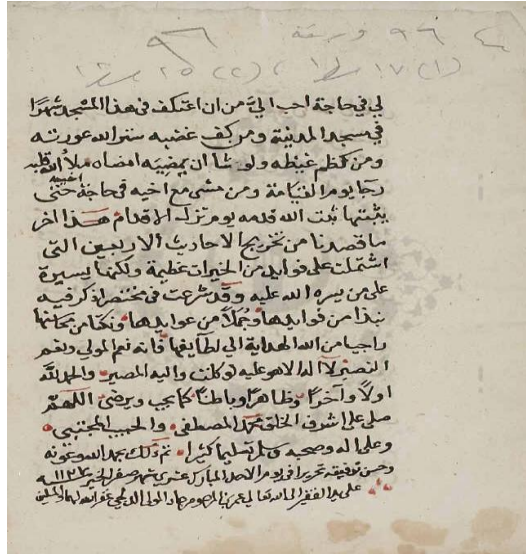 ٩٦ ورقة ٩٦
(١) ١٧ سطرا ، (٢) ٢٥ سطرا
لي في حاجة احب اليّ من ان اعتكف في هذا المسجد شهرًا
في مسجد المدينة ومن كف غضبه ستر الله عورته
ومن كظم غيظه ولو شا ان يمضيه امضاه ملأ الله قلبه
رجا يوم القيامة ومن مشى مع اخيه في حاجة حتى
يثبتها ثبت الله قدمه يوم تزل الاقدام هذا اخر
ما قصدنا من تخريج الاحاديث الاربعين التي
اشتملت على فوايد من الخيرات عظيمة ولكنها يسيرة
على من يسره الله عليه وقد شرعت في مختصر اذكر فيه
نبذا من فوايدها وجملًا من عوايدها ونكتا من محاسنها
راجيا من الله الهداية الى لطايفها فانه نعم المولى ونعم
النصير لا اله الا هو عليه توكلت واليه المصير والحمد لله
اولًا وآخرًا وظاهرًا وباطنًا كما يحب ويرضى اللهم
صلي على اشرف الخلق محمد المصطفى والحبيب المجتبى
وعلى اله وصحبه وسلم تسليما كثيرا تم ذلك بحمد الله وعونه
وحسن توفيقه تحريرا في يوم الاحد المبارك عشري شهر صفر الخير سنة
على يد الفقير الى الله تعالى عمر بن المرحوم غفر الله لهما وللمسلمين